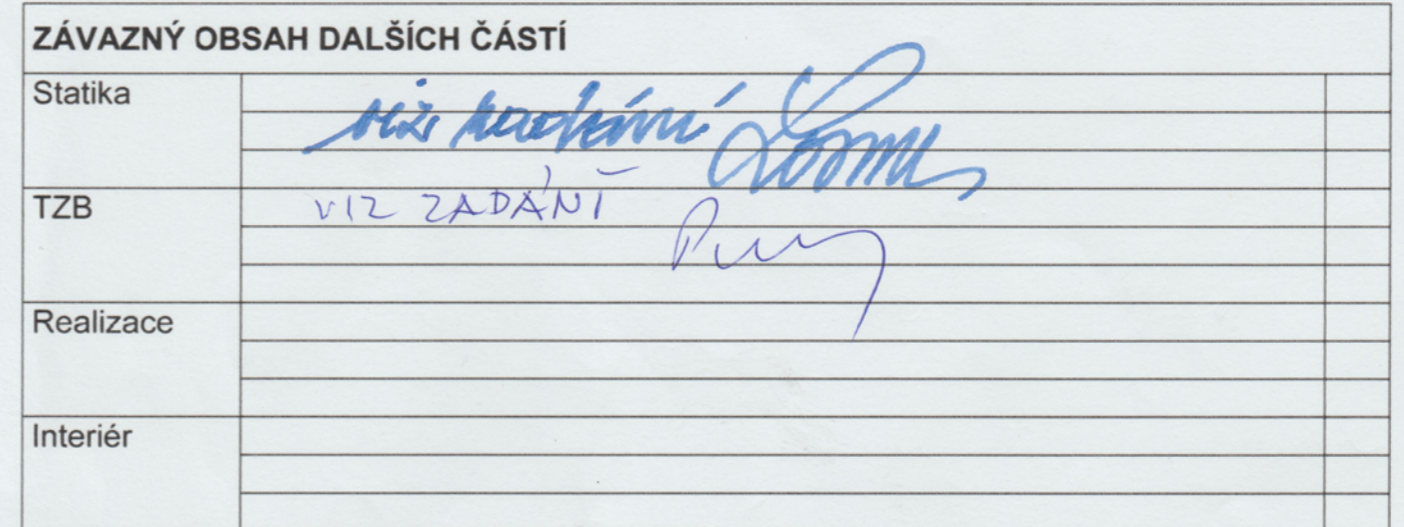 ZÁVAZNÝ OBSAH DALŠÍCH ČÁSTÍ
Statika
viz zadání
TZB
VIZ ZADÁNÍ
Realizace
Interiér